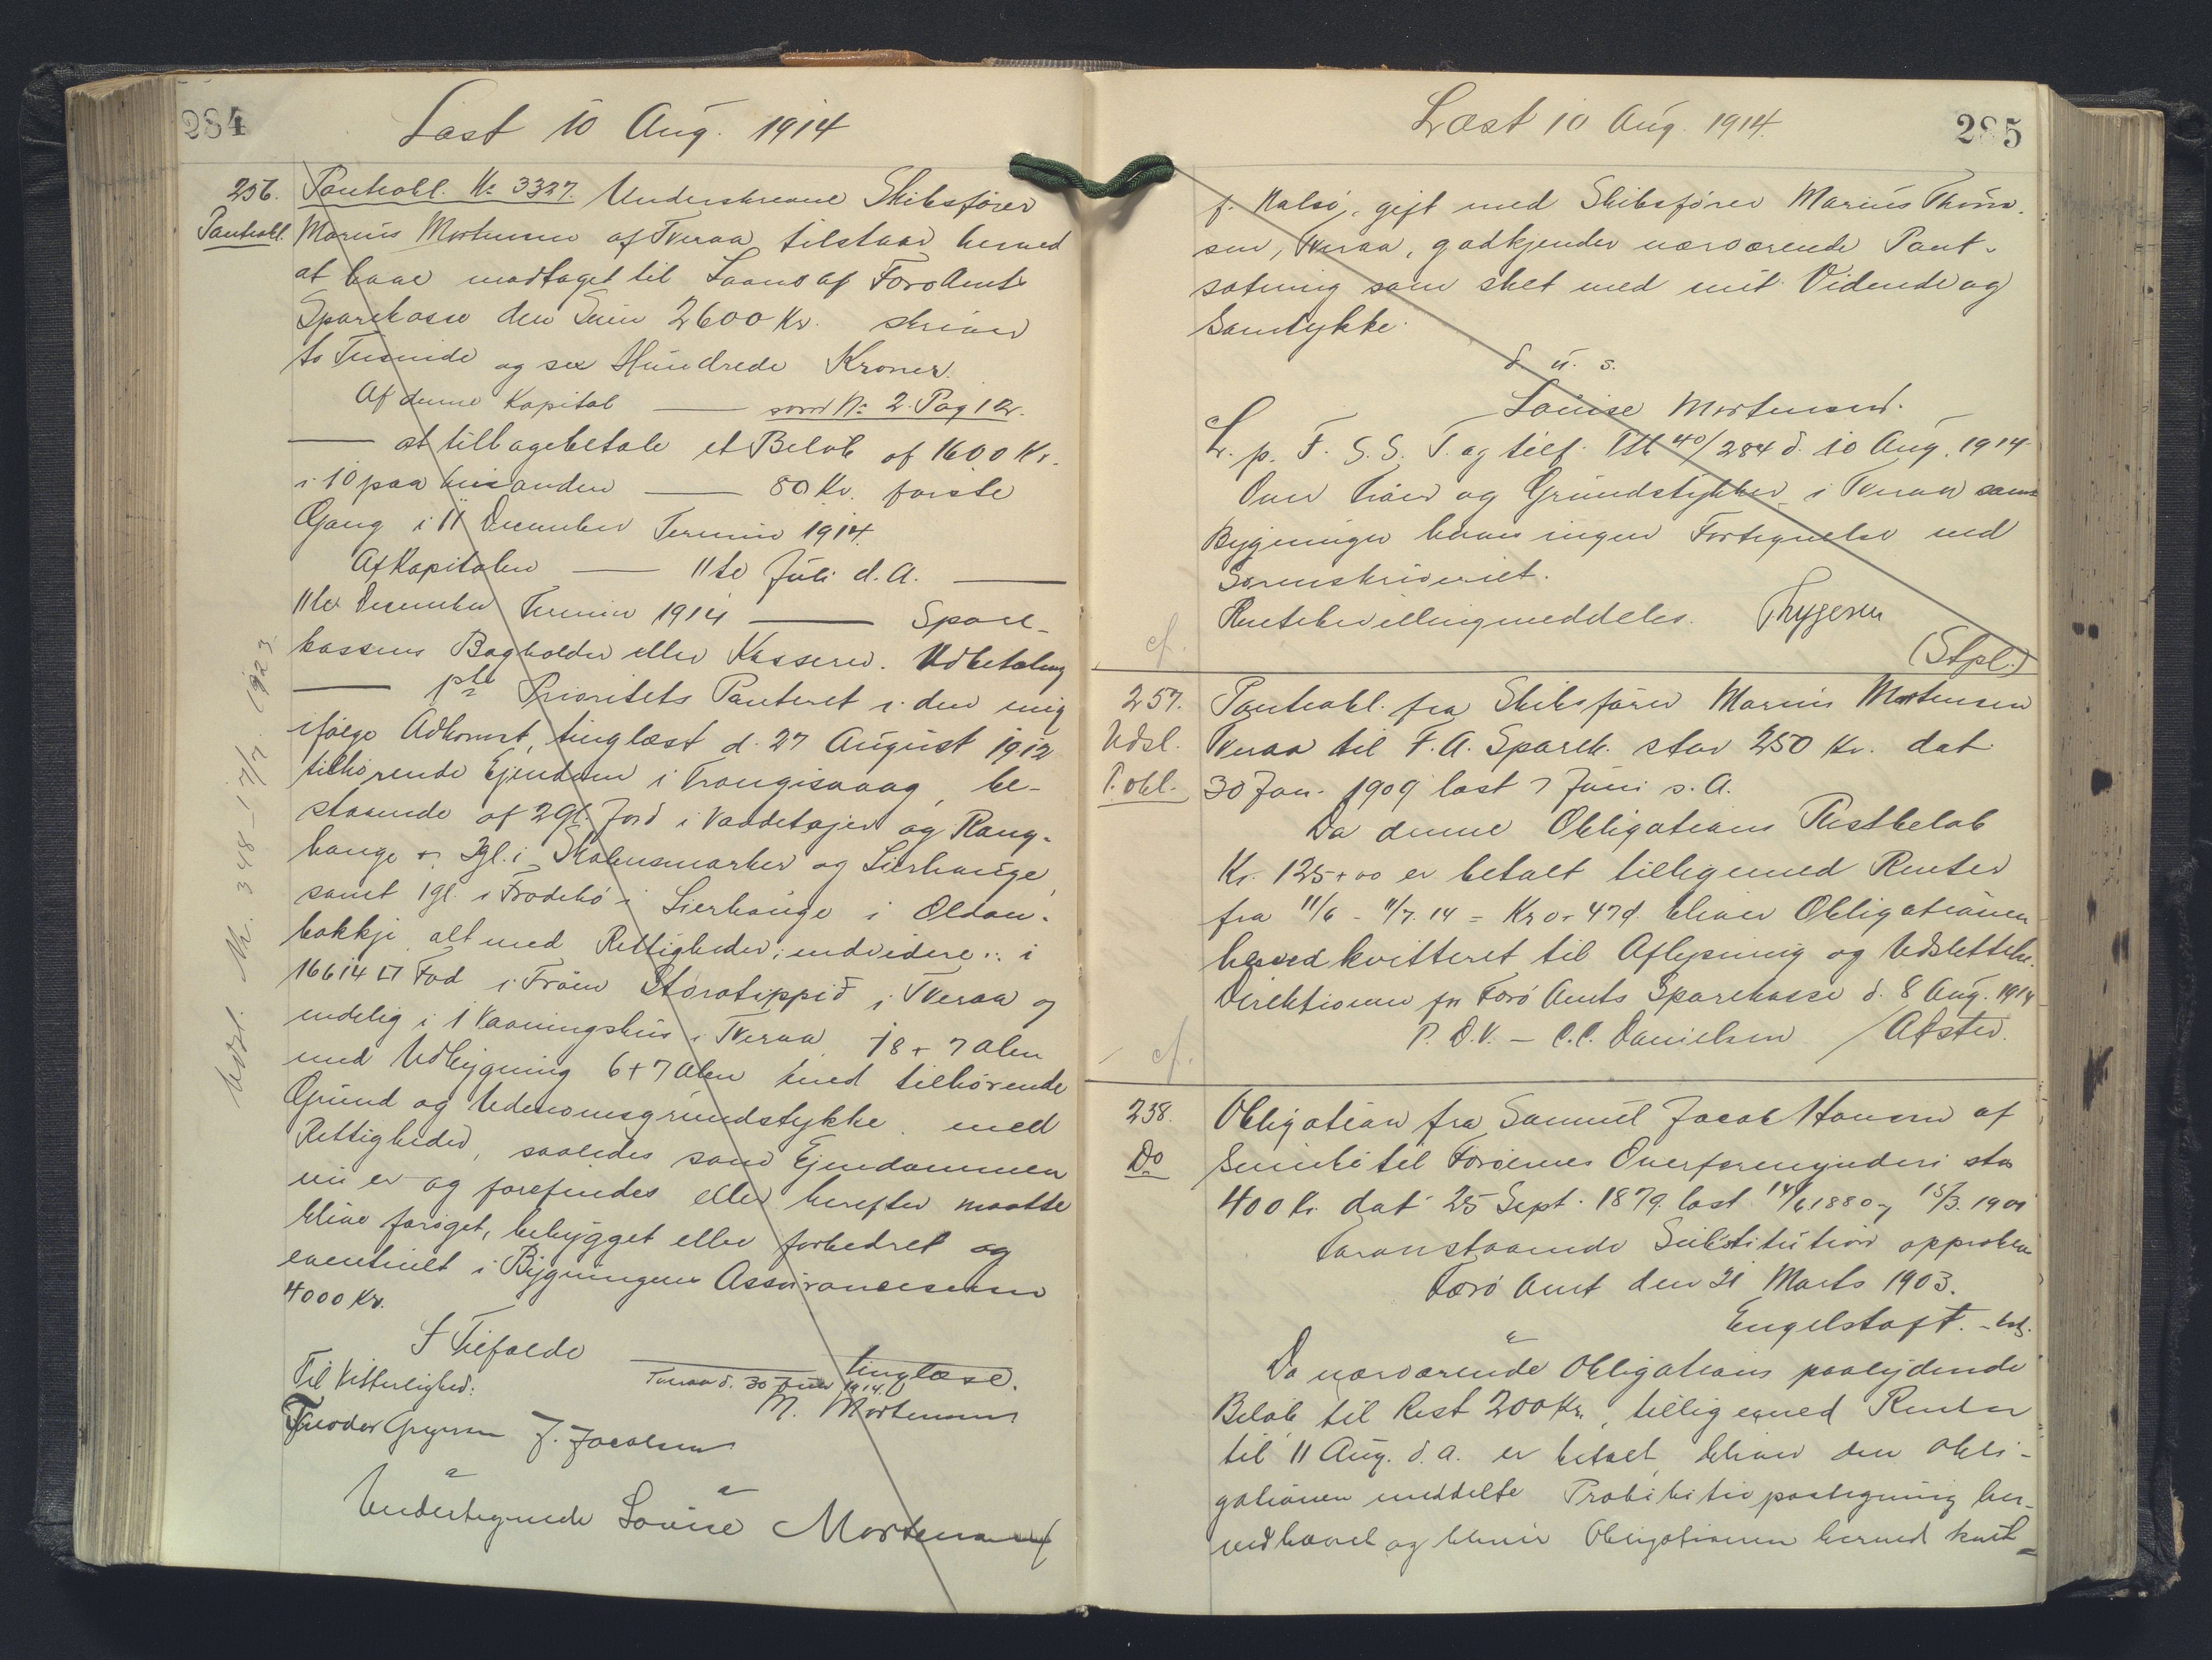 284
Læst 10 Aug. 1914
256. Pantobl. No 3327. Underskrevne Skibsfører
Pantobl. Marius Mortensen af Tveraa tilstaar herved
at have modtaget til Laans af Færø Amts
Sparekasse den Sum 2600 Kr. skriver
to Tusinde og sex Hundrede Kroner.
Af denne Kapital — som No 2 Pag 12.
— at tilbagebetale et Beløb af 1600 Kr.
i 10 paa hinanden — 80 Kr. første
Gang i 11 December Termin 1914.
Af Kapitalen — 11te Juli d.A. —
11te December Termin 1914 — Spare-
kassens Bogholder eller Kasserer. Udbetaling
— 1ste Prioritets Panteret i den mig
ifølge Adkomst, tinglæst d. 27 August 1912
tilhørende Ejendom i Trongisvaag, be-
staaende af 2 gl. Jord i Vaddetøjer og Rang-
hauge
samt 1 gl. i Frodebø i Lierhauge i Oldan-
bakkje alt med Rettigheder; endvidere i
16614 □ Fod i Tråen Storatippið i Tveraa og
endelig i 1 Vaaningshus i Tveraa 18 + 7 Alen
med Udbygning 6 + 7 Alen med tilhørende
Grund og Udenomsgrundstykke med
Rettigheder, saaledes som Ejendommen
nu er og forefindes eller herefter maatte
blive forøget, bebygget eller forbedret og
eventuelt i Bygningens Assurancesum
4000 Kr.
I Tilfælde — tinglæse.
Tveraa d. 30 Juni 1914.
Til Vitterlighed: M. Mortensen
J. Jacobsen
Undertegnede Louise Mortensen
Udsl. 348 - 17/7. 1923.
Læst 10 Aug. 1914.
285
f. Kalsø, gift med Skibsfører Marius Thom-
sen, Tveraa, godkjender nærværende Pant-
sætning som sket med mit Vidende og
Samtykke.
d. u. s.
Louise Mortensen.
L. p. F. S. S. T. og tilf. 40/284 d. 10 Aug. 1914
Over Tråer og Grundstykker i Tveraa samt
Bygninger haves ingen Fortegnelse ved
Sorenskriveriet.
Rentebevilling meddeles. Thygesen
(Stpl.)
cf.
257. Pantobl. fra Skibsfører Marius Mortensen
Udsl. Tveraa til F. A. Sparek. stor 250 Kr. dat.
P. obl. 30 Jan. 1909 læst 7 Juni s. A.
Da denne Obligations Restbeløb
Kr. 125,00 er betalt tilligemed Renter
fra 11/6 - 11/7. 14 = Kr 0, 47 Ø. bliver Obligationen
herved kvitteret til Aflysning og Udslettelse.
Direktionen for Færø Amts Sparekasse d. 8 Aug. 1914
P. D. V. - C.C. Danielsen / Afsted.
cf.
258. Obligation fra Samuel Jacob Hansen af
Do Sumbø til Færøernes Overformynderi stor
400 Kr. dat 25 Sept. 1879 læst 14/6 1880 og 15/3. 1901
Foranstaaende Substitution approberes
Færø Amt den 21 Marts 1903.
Engelstoft.
Da nærværende Obligations paalydende
Beløb til Rest 200 Kr., tilligemed Renter
til 11 Aug. d. A. er betalt, bliver den Obli-
gationen meddelte Prohibitivpaategning her-
ved hævet og bliver Obligationen herved kvit-